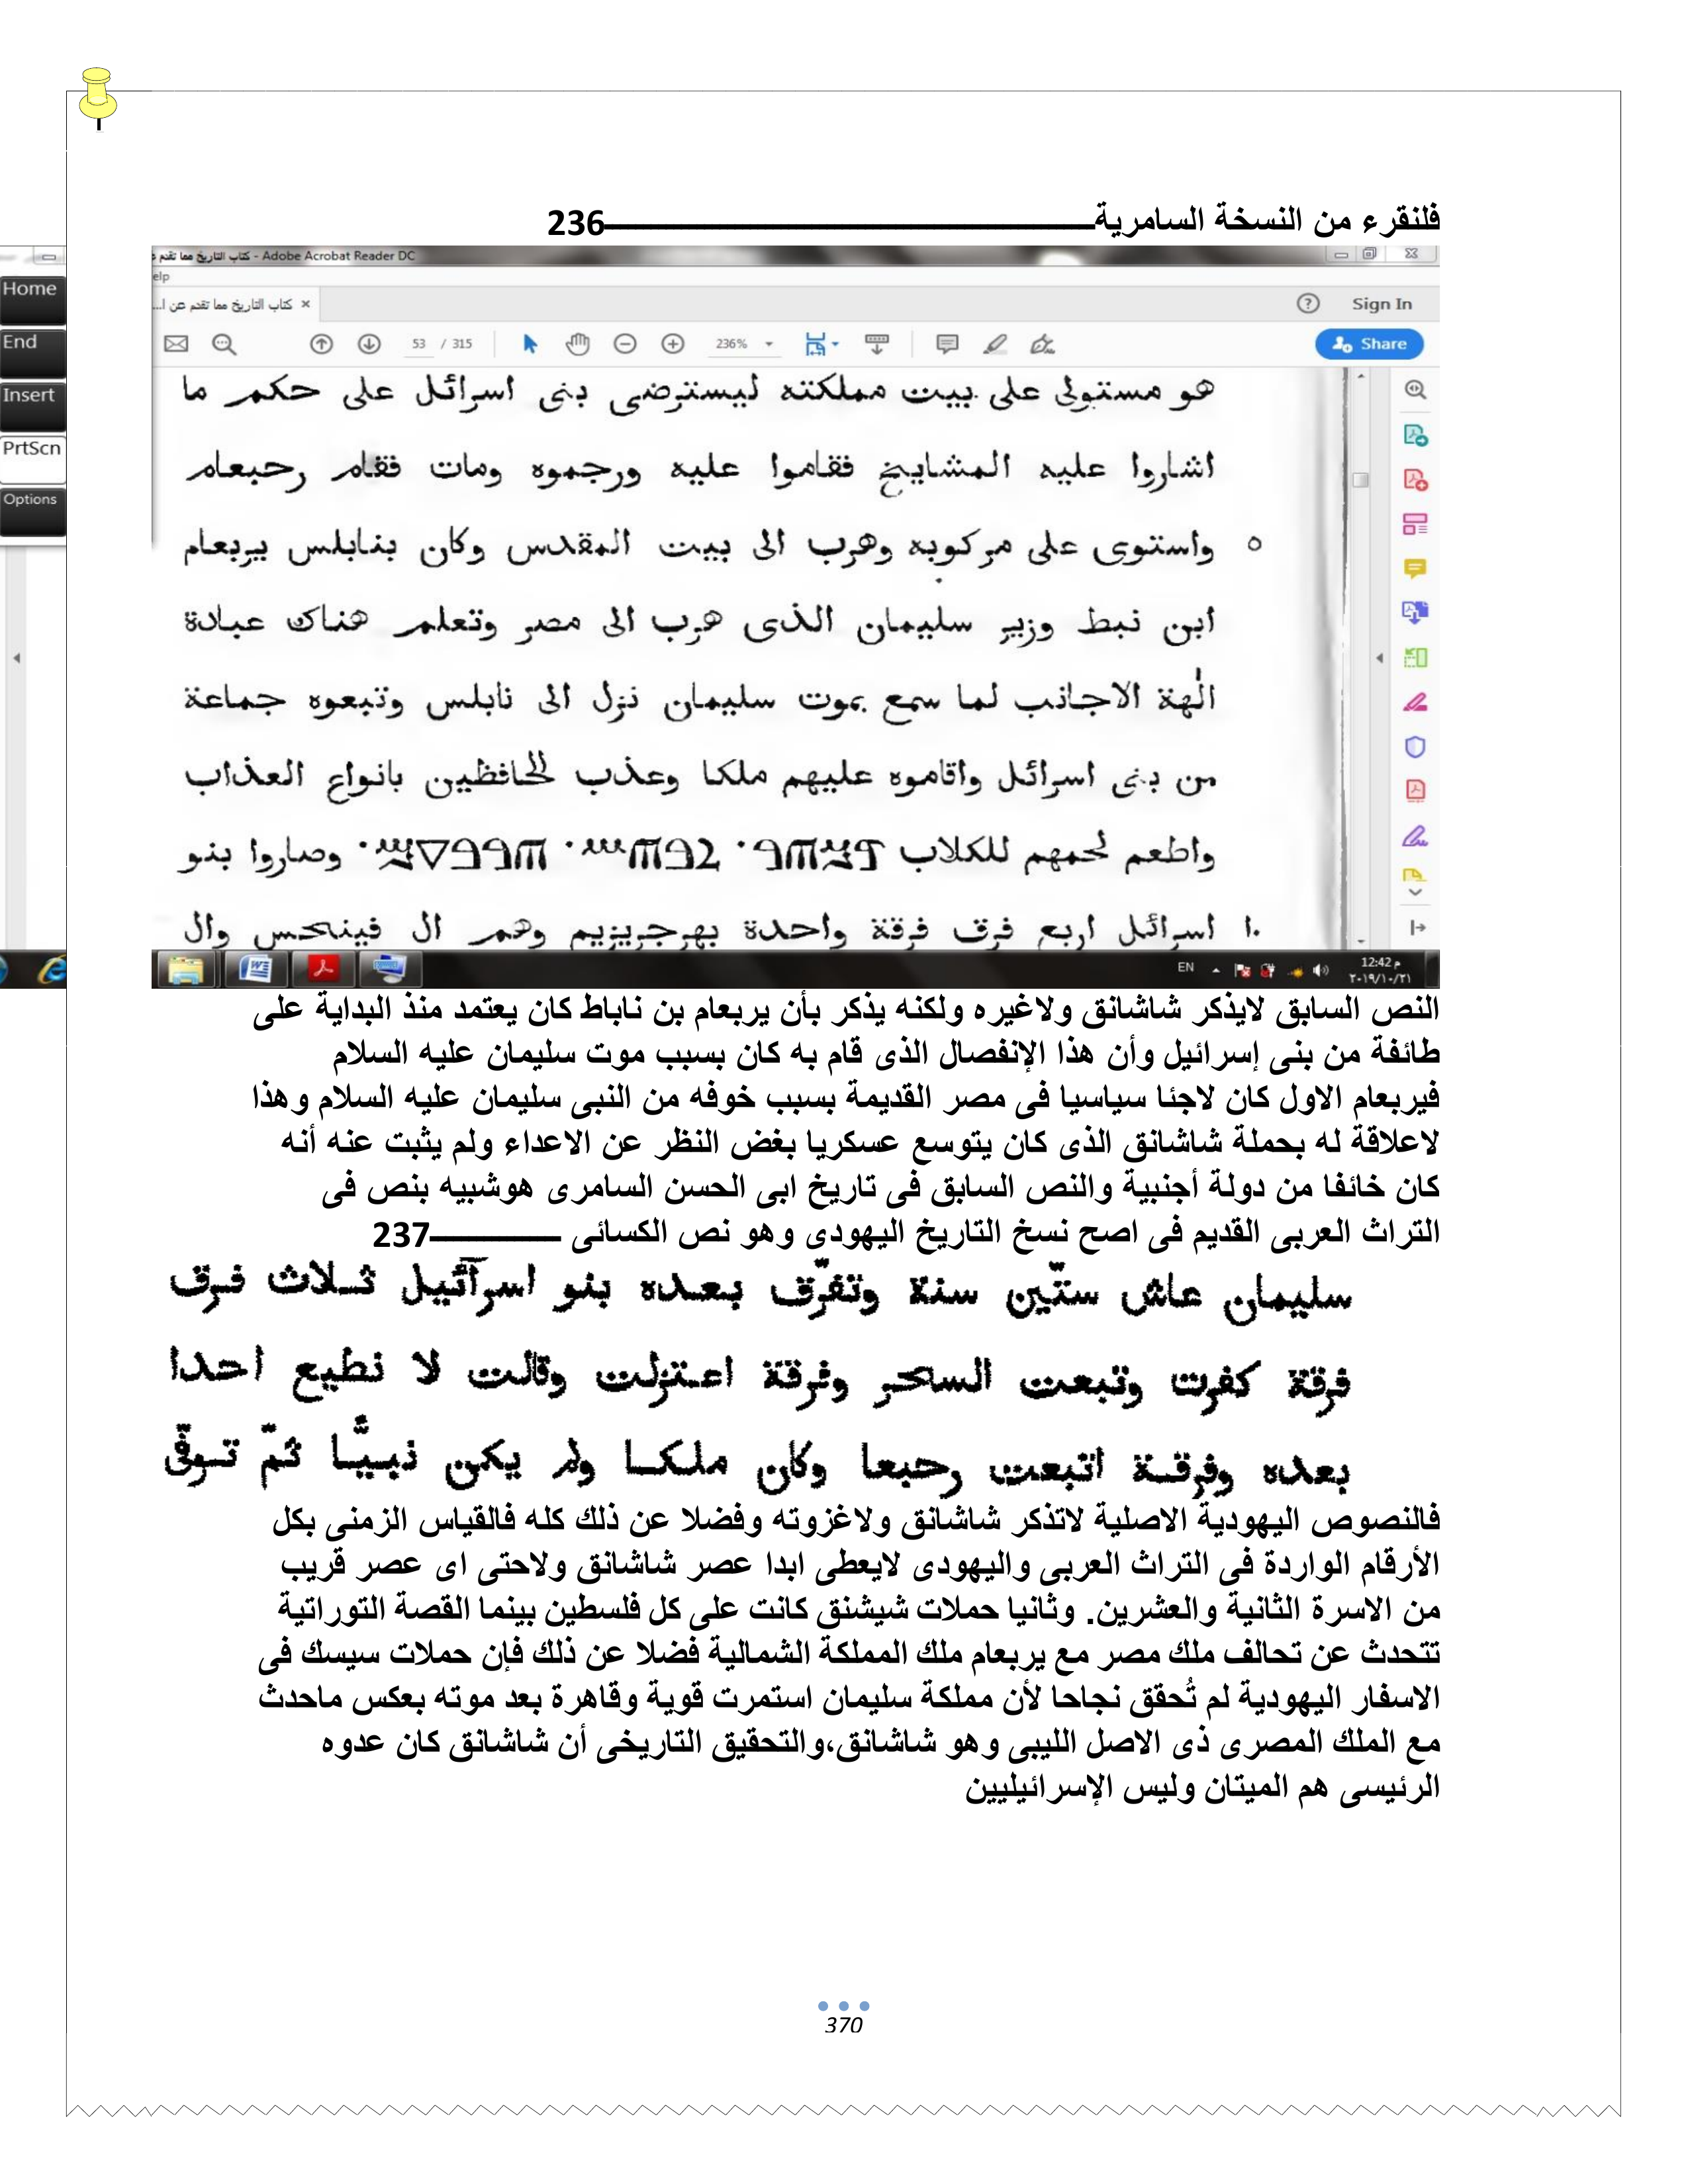 فلنقرء من النسخة السامرية ـــــــــــــــــــــــــــــــــــــــــ236
كتاب التاريخ مما تقدم ع - Adobe Acrobat Reader DC
elp
كتاب التاريخ مما تقدم عن ا... ×
? Sign In
53 / 315 236% Share
Home
End
Insert
PrtScn
Options
هو مستولى على بيت مملكته ليسترضى بنى اسرائل على حكم ما
اشاروا عليه المشايخ فقاموا عليه ورجموه ومات فقام رحبعام
٥ واستوى على مركوبه وهرب الى بيت المقدس وكان بنابلس يربعام
ابن نبط وزير سليمان الذى هرب الى مصر وتعلم هناك عبادة
الهة الاجانب لما سمع بموت سليمان نزل الى نابلس وتبعوه جماعة
من بنى اسرائل واقاموه عليهم ملكا وعذب لحافظين بانواع العذاب
واطعم لحمهم للكلاب وصاروا بنو
١٠ اسرائل اربع فرق فرقة واحدة بهرجريزيم وهم ال فينحس وال
EN 12:42 م
٢٠١٩/١٠/٢١
النص السابق لايذكر شاشانق ولاغيره ولكنه يذكر بأن يربعام بن ناباط كان يعتمد منذ البداية على
طائفة من بنى إسرائيل وأن هذا الإنفصال الذى قام به كان بسبب موت سليمان عليه السلام
فيربعام الاول كان لاجئا سياسيا فى مصر القديمة بسبب خوفه من النبى سليمان عليه السلام وهذا
لاعلاقة له بحملة شاشانق الذى كان يتوسع عسكريا بغض النظر عن الاعداء ولم يثبت عنه أنه
كان خائفا من دولة أجنبية والنص السابق فى تاريخ ابى الحسن السامرى هوشبيه بنص فى
التراث العربى القديم فى اصح نسخ التاريخ اليهودى وهو نص الكسائى ــــــــــــ237
سليمان عاش ستّين سنة وتفرّق بعده بنو اسرآئيل ثلاث فرق
فرقة كفرت وتبعت الساحر وفرقة اعتزلت وقالت لا نطيع احدا
بعده وفرقة اتبعت رحبعا وكان ملكا ولم يكن نبيًّا ثمّ توفّى
فالنصوص اليهودية الاصلية لاتذكر شاشانق ولاغزوته وفضلا عن ذلك كله فالقياس الزمنى بكل
الأرقام الواردة فى التراث العربى واليهودى لايعطى ابدا عصر شاشانق ولاحتى اى عصر قريب
من الاسرة الثانية والعشرين. وثانيا حملات شيشنق كانت على كل فلسطين بينما القصة التوراتية
تتحدث عن تحالف ملك مصر مع يربعام ملك المملكة الشمالية فضلا عن ذلك فإن حملات سيسك فى
الاسفار اليهودية لم تُحقق نجاحا لأن مملكة سليمان استمرت قوية وقاهرة بعد موته بعكس ماحدث
مع الملك المصرى ذى الاصل الليبى وهو شاشانق،والتحقيق التاريخى أن شاشانق كان عدوه
الرئيسى هم الميتان وليس الإسرائيليين
370